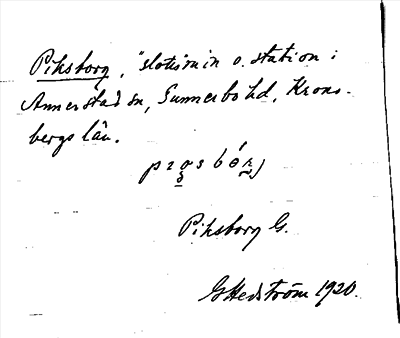 Piksborg, "slotsruin o. station i
Annerstad sn, Sunnerbo hd, Krono-
bergs län.
Piksborg G.
G Hedström 1920.